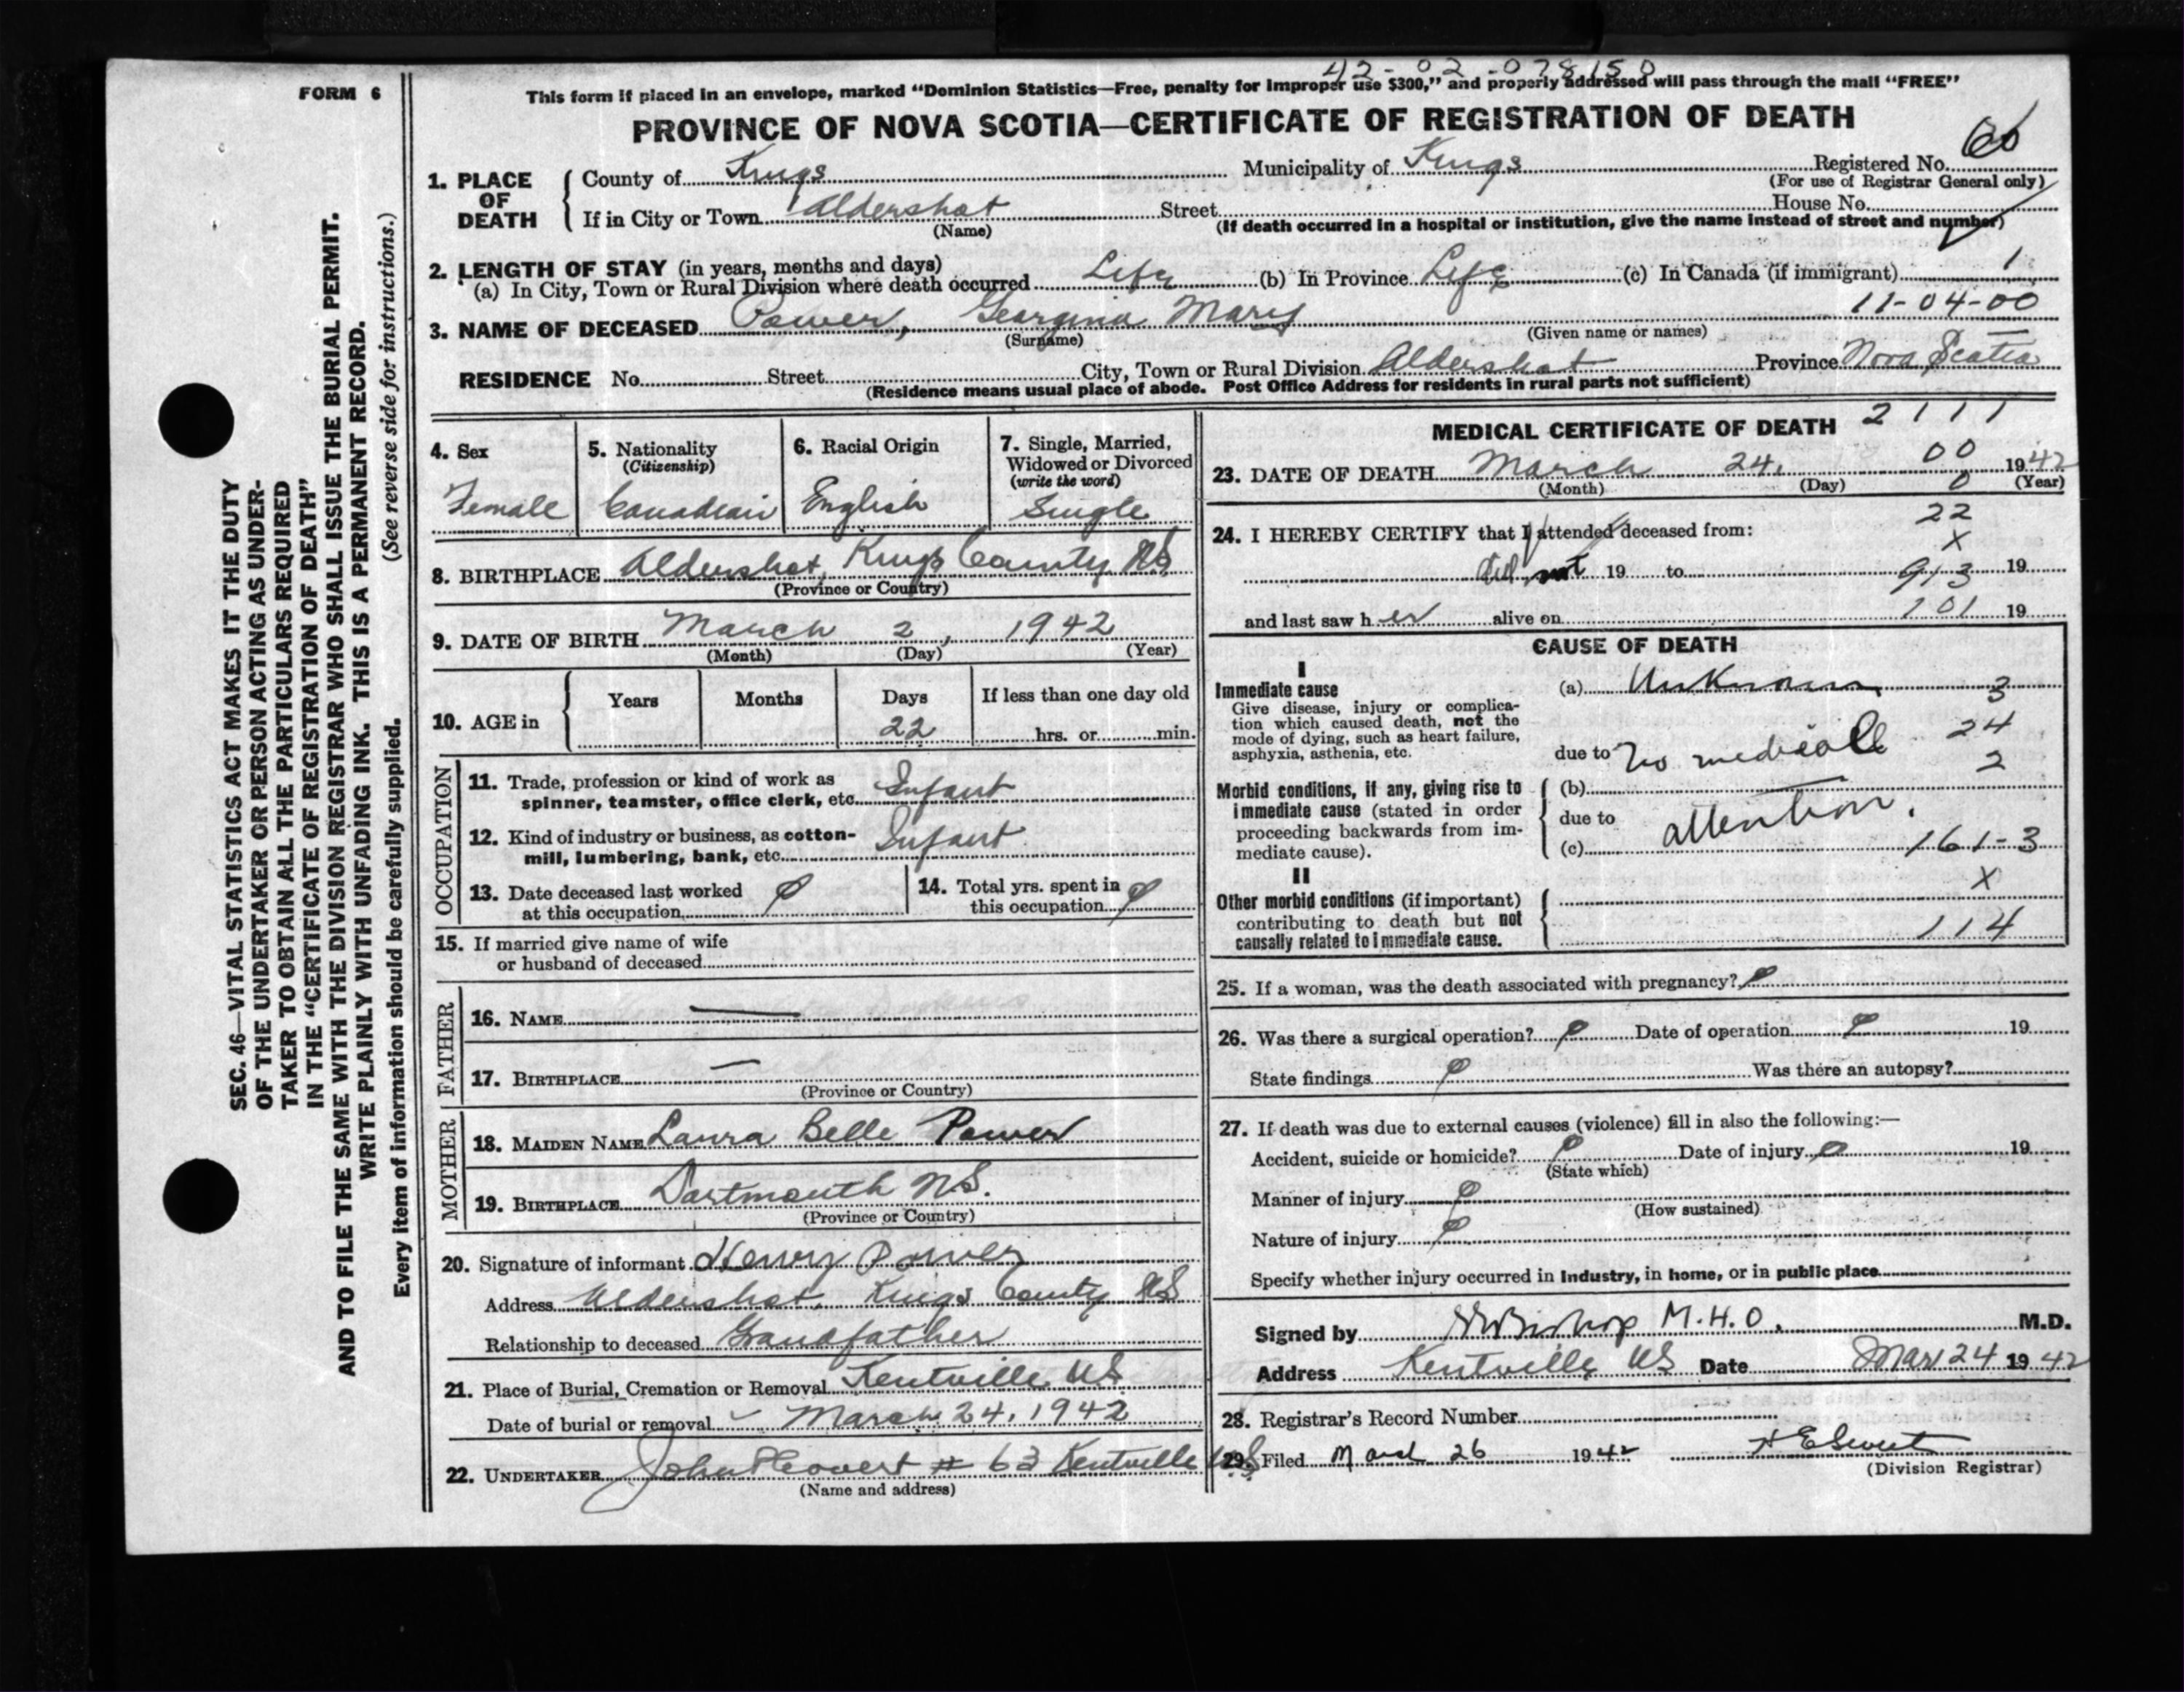 42-02-078150
FORM 6
This form if placed in an envelope, marked "Dominion Statistics—Free, penalty for improper use $300," and properly addressed will pass through the mail "FREE"
PROVINCE OF NOVA SCOTIA—CERTIFICATE OF REGISTRATION OF DEATH
1. PLACE OF DEATH { County of Kings Municipality of Kings Registered No. 66
(For use of Registrar General only)
If in City or Town Aldershot Street House No.
(Name) (If death occurred in a hospital or institution, give the name instead of street and number)
2. LENGTH OF STAY (in years, months and days)
(a) In City, Town or Rural Division where death occurred Life (b) In Province Life (c) In Canada (if immigrant) 1
11-04-00
3. NAME OF DECEASED Power, Georgina Mary
(Surname) (Given name or names)
RESIDENCE No. Street City, Town or Rural Division Aldershot Province Nova Scotia
(Residence means usual place of abode. Post Office Address for residents in rural parts not sufficient)
SEC. 46—VITAL STATISTICS ACT MAKES IT THE DUTY
OF THE UNDERTAKER OR PERSON ACTING AS UNDER-
TAKER TO OBTAIN ALL THE PARTICULARS REQUIRED
IN THE "CERTIFICATE OF REGISTRATION OF DEATH"
AND TO FILE THE SAME WITH THE DIVISION REGISTRAR WHO SHALL ISSUE THE BURIAL PERMIT.
WRITE PLAINLY WITH UNFADING INK. THIS IS A PERMANENT RECORD.
(See reverse side for instructions.)
Every item of information should be carefully supplied.
4. Sex
Female
5. Nationality
(Citizenship)
Canadian
6. Racial Origin
English
7. Single, Married,
Widowed or Divorced
(write the word)
Single
8. BIRTHPLACE Aldershot, Kings County NS
(Province or Country)
9. DATE OF BIRTH March 2, 1942
(Month) (Day) (Year)
10. AGE in { Years Months Days If less than one day old
22 hrs. or min.
OCCUPATION
11. Trade, profession or kind of work as
spinner, teamster, office clerk, etc. Infant
12. Kind of industry or business, as cotton-
mill, lumbering, bank, etc. Infant
13. Date deceased last worked
at this occupation
14. Total yrs. spent in
this occupation
15. If married give name of wife
or husband of deceased
FATHER
16. NAME —
17. BIRTHPLACE —
(Province or Country)
MOTHER
18. MAIDEN NAME Laura Belle Power
19. BIRTHPLACE Dartmouth N.S.
(Province or Country)
20. Signature of informant Henry Power
Address Aldershot, Kings County NS
Relationship to deceased Grandfather
21. Place of Burial, Cremation or Removal Kentville NS
Date of burial or removal March 24, 1942
22. UNDERTAKER # 63 Kentville N.S.
(Name and address)
MEDICAL CERTIFICATE OF DEATH 2111
23. DATE OF DEATH March 24, 00 1942
(Month) (Day) 0 (Year)
22
24. I HEREBY CERTIFY that I attended deceased from:
X
did not 19 to 913 19
and last saw her alive on 101 19
CAUSE OF DEATH
I
Immediate cause
Give disease, injury or complica-
tion which caused death, not the
mode of dying, such as heart failure,
asphyxia, asthenia, etc.
(a) Unknown 3
24
due to No medical
2
Morbid conditions, if any, giving rise to
immediate cause (stated in order
proceeding backwards from im-
mediate cause).
(b)
due to attention.
(c) 161-3
II
Other morbid conditions (if important)
contributing to death but not
causally related to immediate cause.
X
114
25. If a woman, was the death associated with pregnancy?
26. Was there a surgical operation? Date of operation 19
State findings Was there an autopsy?
27. If death was due to external causes (violence) fill in also the following:—
Accident, suicide or homicide? Date of injury 19
(State which)
Manner of injury
(How sustained)
Nature of injury
Specify whether injury occurred in Industry, in home, or in public place
Signed by Bishop M.H.O. M.D.
Address Kentville NS Date Mar 24 1942
28. Registrar's Record Number
29. Filed March 26 1942
(Division Registrar)